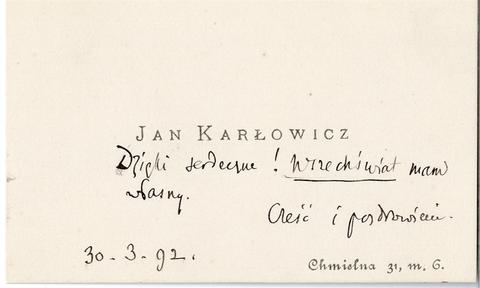 JAN KARŁOWICZ
Dzięki serdeczne! Wszechświat mam
własny.
Cześć i pozdrowienie.
30-3-92.
Chmielna 31, m. 6.